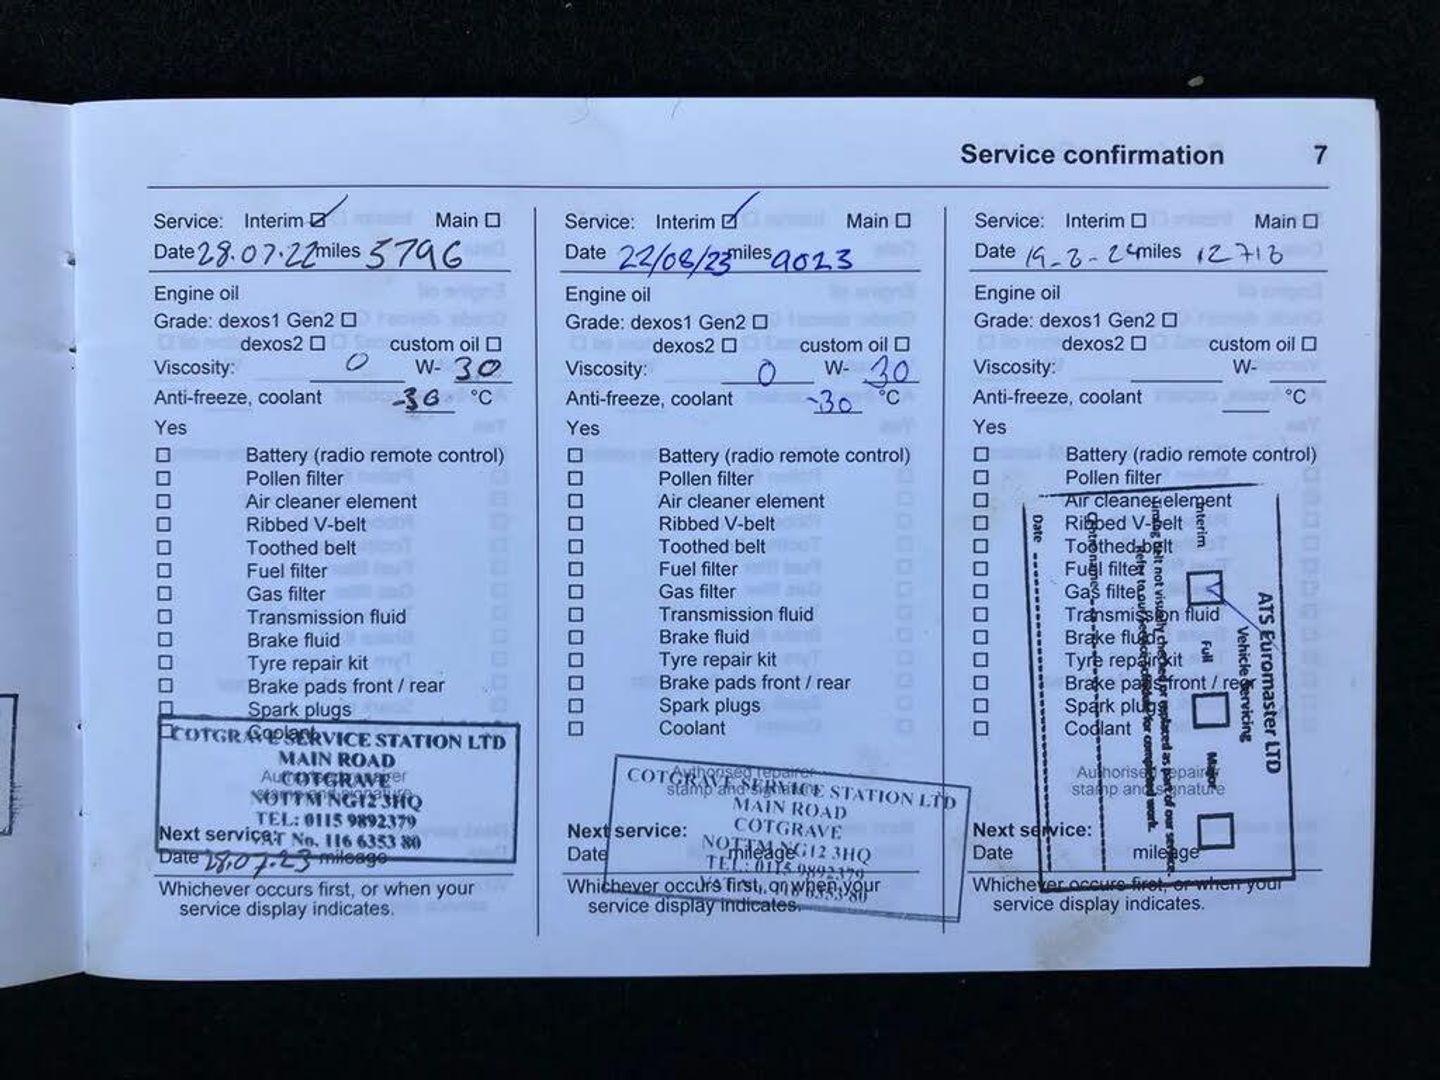 Service confirmation 7
Service: Interim Main
Date 28.07.22 miles 5796
Engine oil
Grade: dexos1 Gen2
dexos2 custom oil
Viscosity: 0 W- 30
Anti-freeze, coolant -30 °C
Yes
Battery (radio remote control)
Pollen filter
Air cleaner element
Ribbed V-belt
Toothed belt
Fuel filter
Gas filter
Transmission fluid
Brake fluid
Tyre repair kit
Brake pads front / rear
Spark plugs
Coolant
COTGRAVE SERVICE STATION LTD
MAIN ROAD
Authorised repairer
COTGRAVE
stamp and signature
NOTTM NG12 3HQ
TEL: 0115 9892379
Next service:
VAT No. 116 6353 80
Date 28.07.23 mileage
Whichever occurs first, or when your
service display indicates.
Service: Interim Main
Date 22/08/23 miles 9023
Engine oil
Grade: dexos1 Gen2
dexos2 custom oil
Viscosity: 0 W- 30
Anti-freeze, coolant -30 °C
Yes
Battery (radio remote control)
Pollen filter
Air cleaner element
Ribbed V-belt
Toothed belt
Fuel filter
Gas filter
Transmission fluid
Brake fluid
Tyre repair kit
Brake pads front / rear
Spark plugs
Coolant
Authorised repairer
COTGRAVE SERVICE STATION LTD
stamp and signature
MAIN ROAD
COTGRAVE
Next service:
NOTTM NG12 3HQ
Date mileage
TEL: 0115 9892379
Whichever occurs first, or when your
VAT No. 116 6353 80
service display indicates.
Service: Interim Main
Date 19-8-24 miles 12718
Engine oil
Grade: dexos1 Gen2
dexos2 custom oil
Viscosity: W-
Anti-freeze, coolant °C
Yes
Battery (radio remote control)
Pollen filter
Air cleaner element
Ribbed V-belt
Toothed belt
Fuel filter
Gas filter
Transmission fluid
Brake fluid
Tyre repair kit
Brake pads front / rear
Spark plugs
Coolant
Authorised repairer
stamp and signature
Next service:
Date mileage
Whichever occurs first, or when your
service display indicates.
ATS Euromaster LTD
Vehicle Servicing
Interim Full Major
Timing belt not visually checked or replaced as part of our service.
Refer to our service schedule for completed work.
Centre name
Date